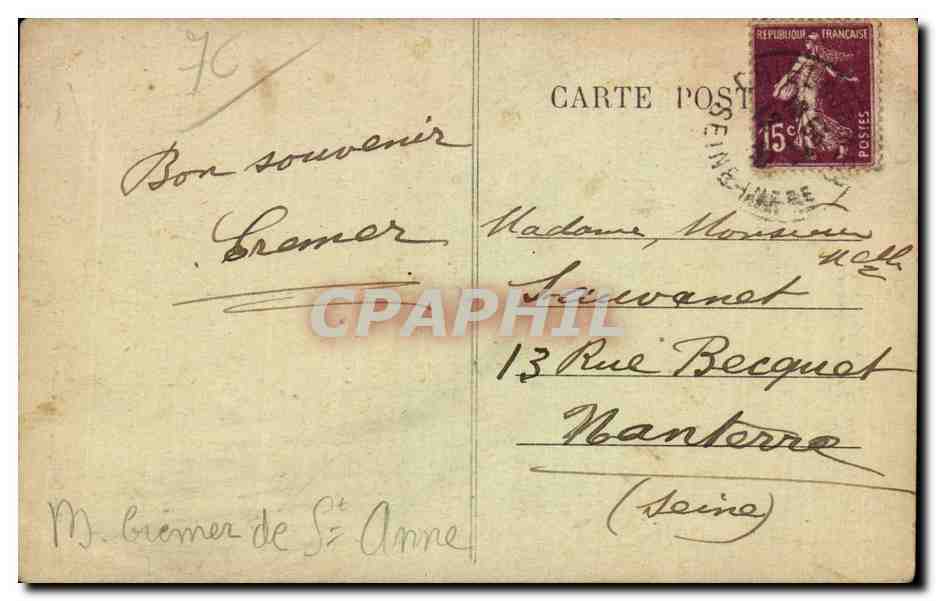 76
Bon souvenir
Cremer
M. Crémer de St Anne
CARTE POST
REPUBLIQUE FRANÇAISE
15c
POSTES
SEINE-INFRE
Madame, Monsieur
Melle
Sauvanet
13 Rue Becquet
Nanterre
(Seine)
CPAPHIL